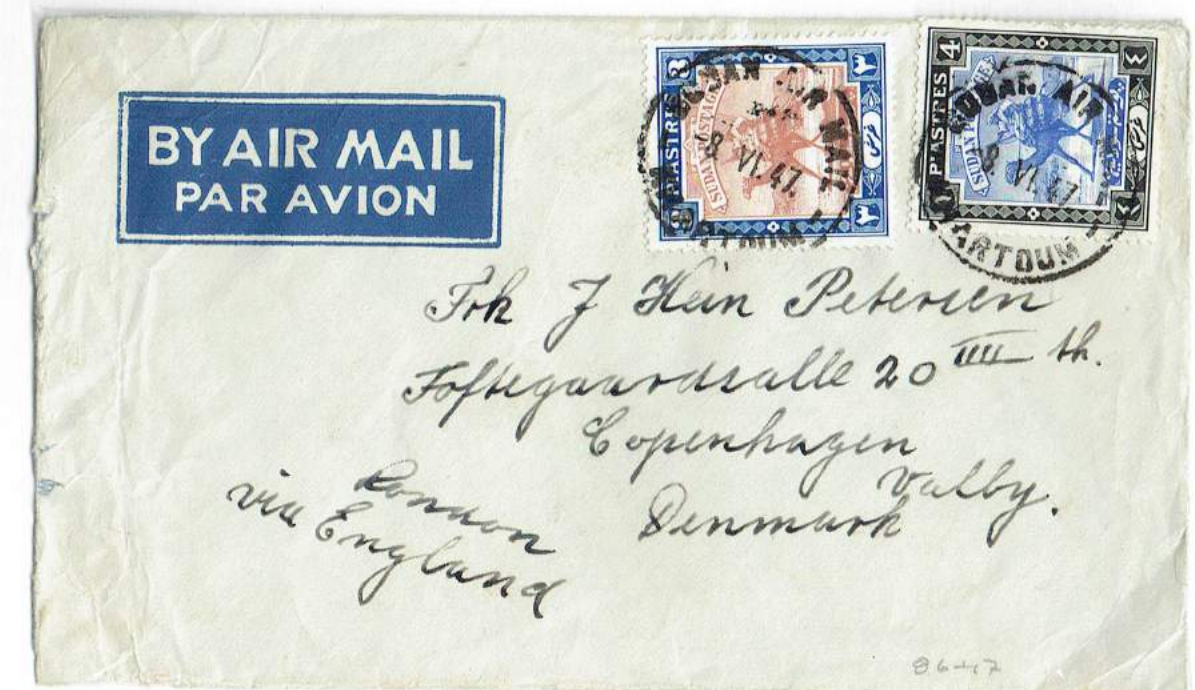 BY AIR MAIL
PAR AVION
3 PIASTRES 3
SUDAN POSTAGE
٣ ٣
SUDAN AIR MAIL
8 VI. 47.
4 PIASTRES
SUDAN POSTAGE
٤ ٤
SUDAN AIR
8 VI. 47.
KHARTOUM
Frk J Hein Petersen
Toftegaardsalle 20 IIII th.
Copenhagen
Valby.
Denmark
via London
England
8647